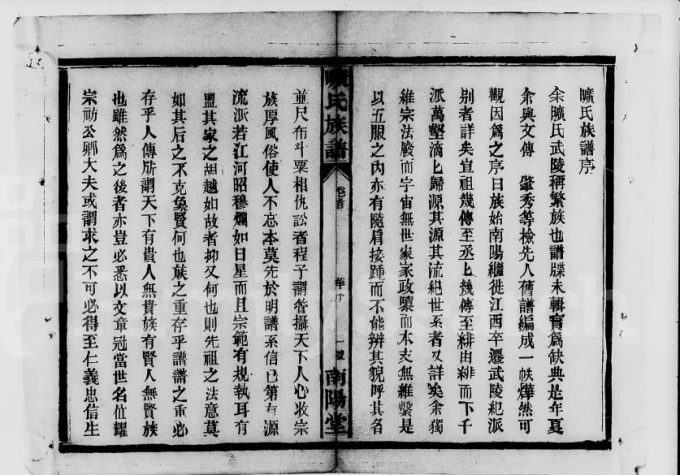 曠氏族譜序
余曠氏武陵稱繁族也譜牒未輯實為缺典是年夏
余與文傳 肇秀等檢先人舊譜編成一帙燁然可
觀因為之序曰族始南陽繼徙江西卒遷武陵紀派
別者詳矣宣祖幾傳至丞上幾傳至緋由緋而下千
派萬壑滴上歸源其源其流紀世系者又詳矣余獨
維宗法廢而宇宙無世家家政隳而本支無維繫是
以五服之內亦有隨肩接踵而不能辨其貌呼其名
曠氏族譜
卷首
序
一號
南陽堂
並尺布斗粟相仇訟者程子謂管攝天下人心收宗
族厚風俗使人不忘本莫先於明譜系信已第有源
流派若江河昭穆爛如日星而且宗範有規執耳有
盟其家之胡越如故者抑又何也則先祖之法意莫
如其后之不克象賢何也族之重存乎譜譜之重必
存乎人傳所謂天下有貴人無貴族有賢人無賢族
也雖然為之後者亦豈必悉以文章冠當世名位耀
宗祊公卿大夫或謂求之不可必得至仁義忠信生